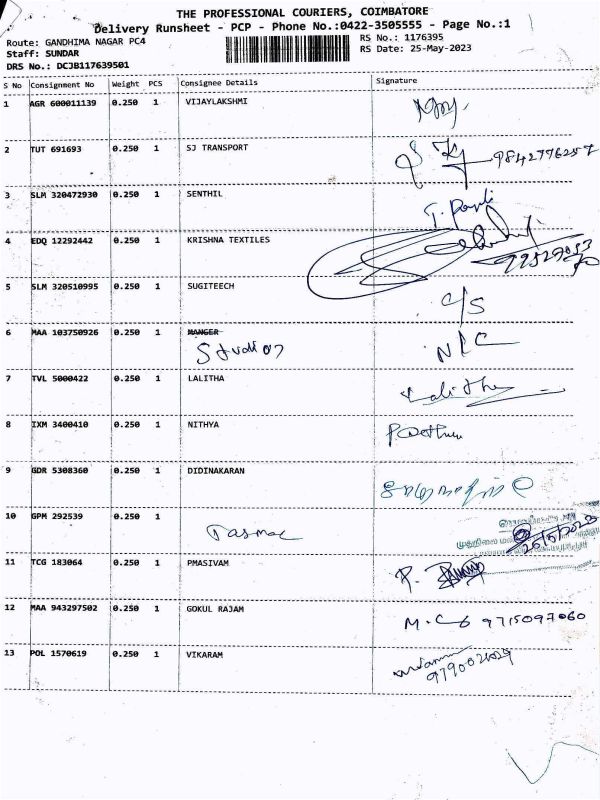 THE PROFESSIONAL COURIERS, COIMBATORE
Delivery Runsheet - PCP - Phone No.:0422-3505555 - Page No.:1
Route: GANDHIMA NAGAR PC4
RS No.: 1176395
Staff: SUNDAR
RS Date: 25-May-2023
DRS No.: DCJB117639501
S No Consignment No Weight PCS Consignee Details Signature
1 AGR 600011139 0.250 1 VIJAYLAKSHMI
2 TUT 691693 0.250 1 SJ TRANSPORT 9842776257
3 SLM 320472930 0.250 1 SENTHIL
4 EDQ 12292442 0.250 1 KRISHNA TEXTILES
5 SLM 320510995 0.250 1 SUGITEECH C/S
6 MAA 103750926 0.250 1 MANGER N/C
7 TVL 5000422 0.250 1 LALITHA Lalitha
8 IXM 3400410 0.250 1 NITHYA
9 GDR 5308360 0.250 1 DIDINAKARAN
10 GPM 292539 0.250 1 Tasmac
11 TCG 183064 0.250 1 PMASIVAM
12 MAA 943297502 0.250 1 GOKUL RAJAM 9715097060
13 POL 1570619 0.250 1 VIKARAM